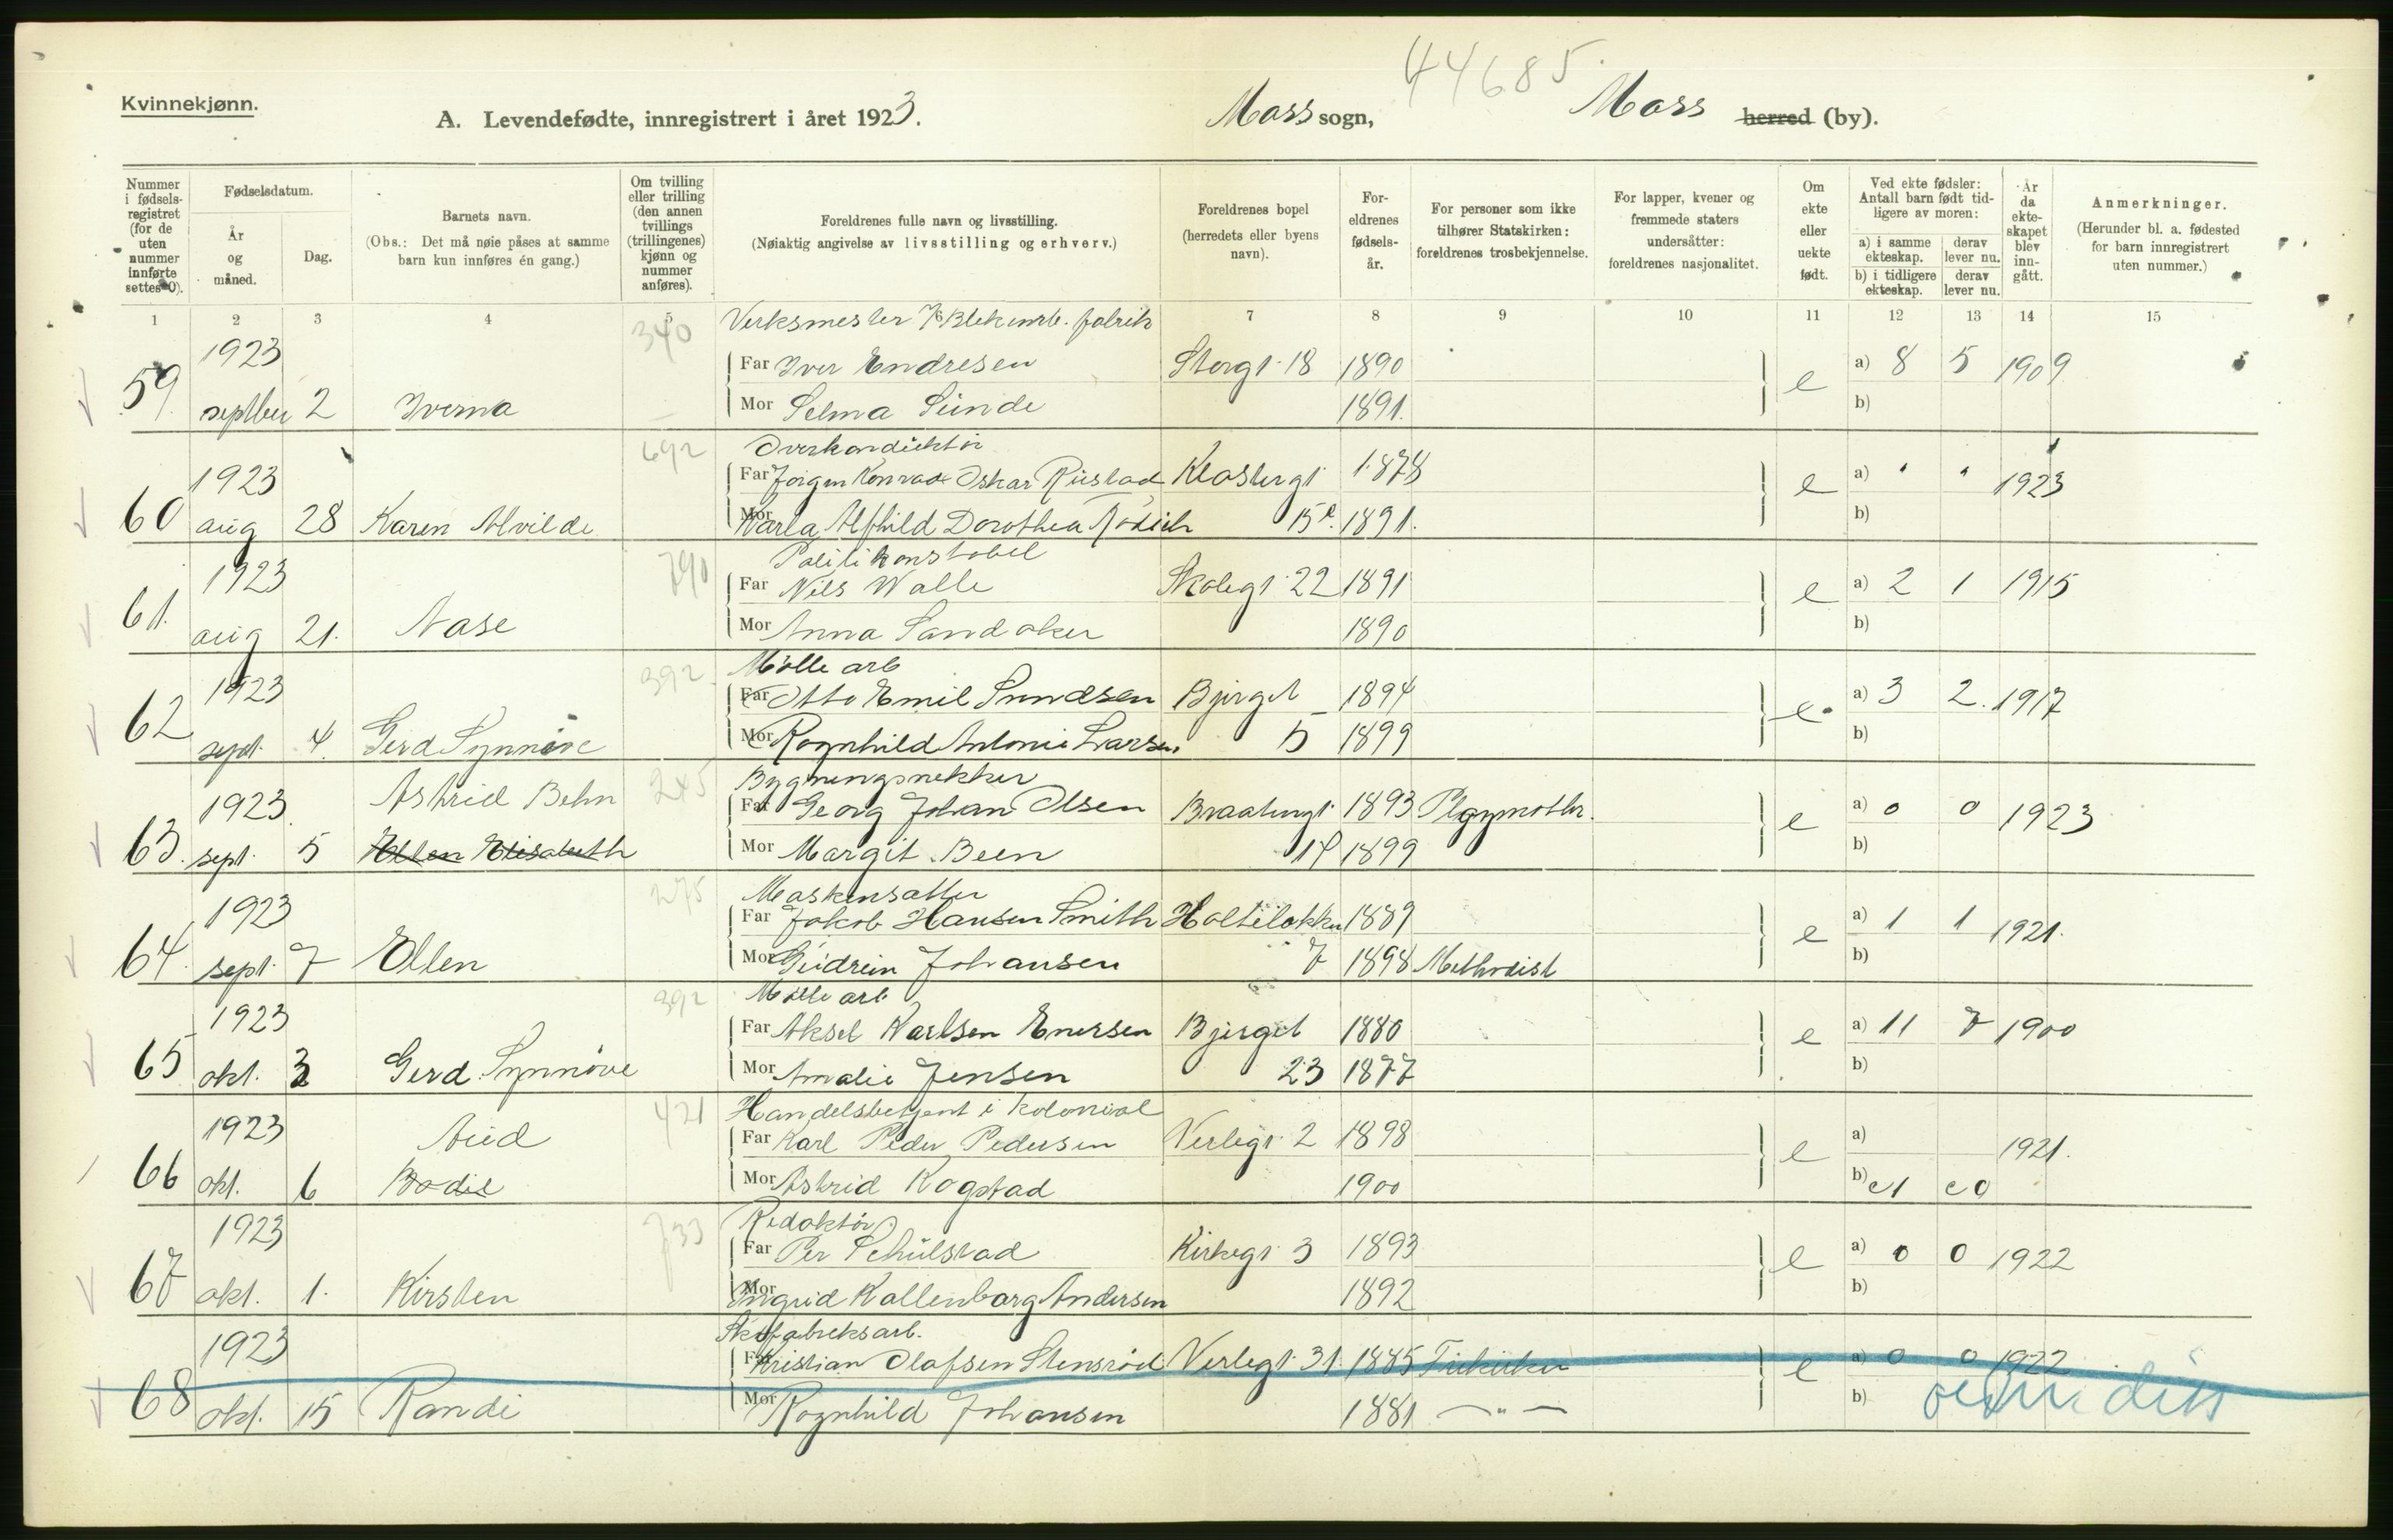 44685.
Kvinnekjønn.
A. Levendefødte, innregistrert i året 1923.
Moss sogn,
Moss herred (by).
Nummer i fødsels-registret (for de uten nummer innførte settes 0).
Fødselsdatum.
År og måned.
Dag.
Barnets navn.
(Obs.: Det må nøie påses at samme barn kun innføres én gang.)
Om tvilling eller trilling (den annen tvillings (trillingenes) kjønn og nummer anføres).
Foreldrenes fulle navn og livsstilling.
(Nøiaktig angivelse av livsstilling og erhverv.)
Foreldrenes bopel (herredets eller byens navn).
For-eldrenes fødsels-år.
For personer som ikke tilhører Statskirken: foreldrenes trosbekjennelse.
For lapper, kvener og fremmede staters undersåtter: foreldrenes nasjonalitet.
Om ekte eller uekte født.
Ved ekte fødsler: Antall barn født tid-ligere av moren:
a) i samme ekteskap.
derav lever nu.
b) i tidligere ekteskap.
derav lever nu.
År da ekte-skapet blev inn-gått.
Anmerkninger.
(Herunder bl. a. fødested for barn innregistrert uten nummer.)
1 2 3 4 5 6 7 8 9 10 11 12 13 14 15
340 Verksmester
1923 Far Iver Endresen Storgt 18 1890 e a) 8 5 1909
59. septber 2 Iverna Mor Selma Sunde 1891. b)
692 Overkonduktør
1923 Far Jørgen Konrad Oskar Rustad 1878 e a) " " 1923
60 aug 28 Karen Alvilde Mor Alfhild Dorothea 15 1891. b)
790 Politikonstabel
1923 Far Nils Walle Skolegt 22 1891 e a) 2 1 1915
61. aug 21. Aase Mor Anna Sandaker 1890 b)
392 Mølle arb
1923 Far Otto Emil Bjerget 1894 e a) 3 2. 1917
62 sept. 4. Gerd Synnøve Mor Ragnhild Antonie Larsen 5 1899 b)
245 Bygningsnekker
1923 Astrid Behn Far Georg Johan Olsen Braatengt 1893 e a) 0 0 1923
63. sept. 5 Ellen Elisabeth Mor Margit Been 1899 b)
275
1923 Far Jakob Hansen Smith 1889 e a) 1 1 1921.
64. sept. 7 Ellen Mor Gudrun Johansen 7 1898 Methodist b)
392 Mølle arb
1923 Far Aksel Karlsen Enersen Bjerget 1880 e a) 11 7 1900
65 okt. 3 Gerd Synnøve Mor Amalie Jensen 23 1877 b)
421 Handelsbetjent i kolonial
1923 Aud Far Karl Peder Pedersen Verlegt 2 1898 e a) 1921.
66 okt. 6 Bodil Mor Astrid Rogstad 1900 b) 1 0
733 Redaktør
1923 Far Per Schulstad Kirkegt 3 1893 e a) 0 0 1922
67 okt. 1. Kirsten Mor Ingrid Kallenborg Andersen 1892 b)
Skofabriksarb.
1923 Far Kristian Olafsen Stensrød Verlegt 31. 1885 Frikirken e a) 0 0 1922
68 okt. 15 Randi Mor Ragnhild Johansen 1881 — " — b)